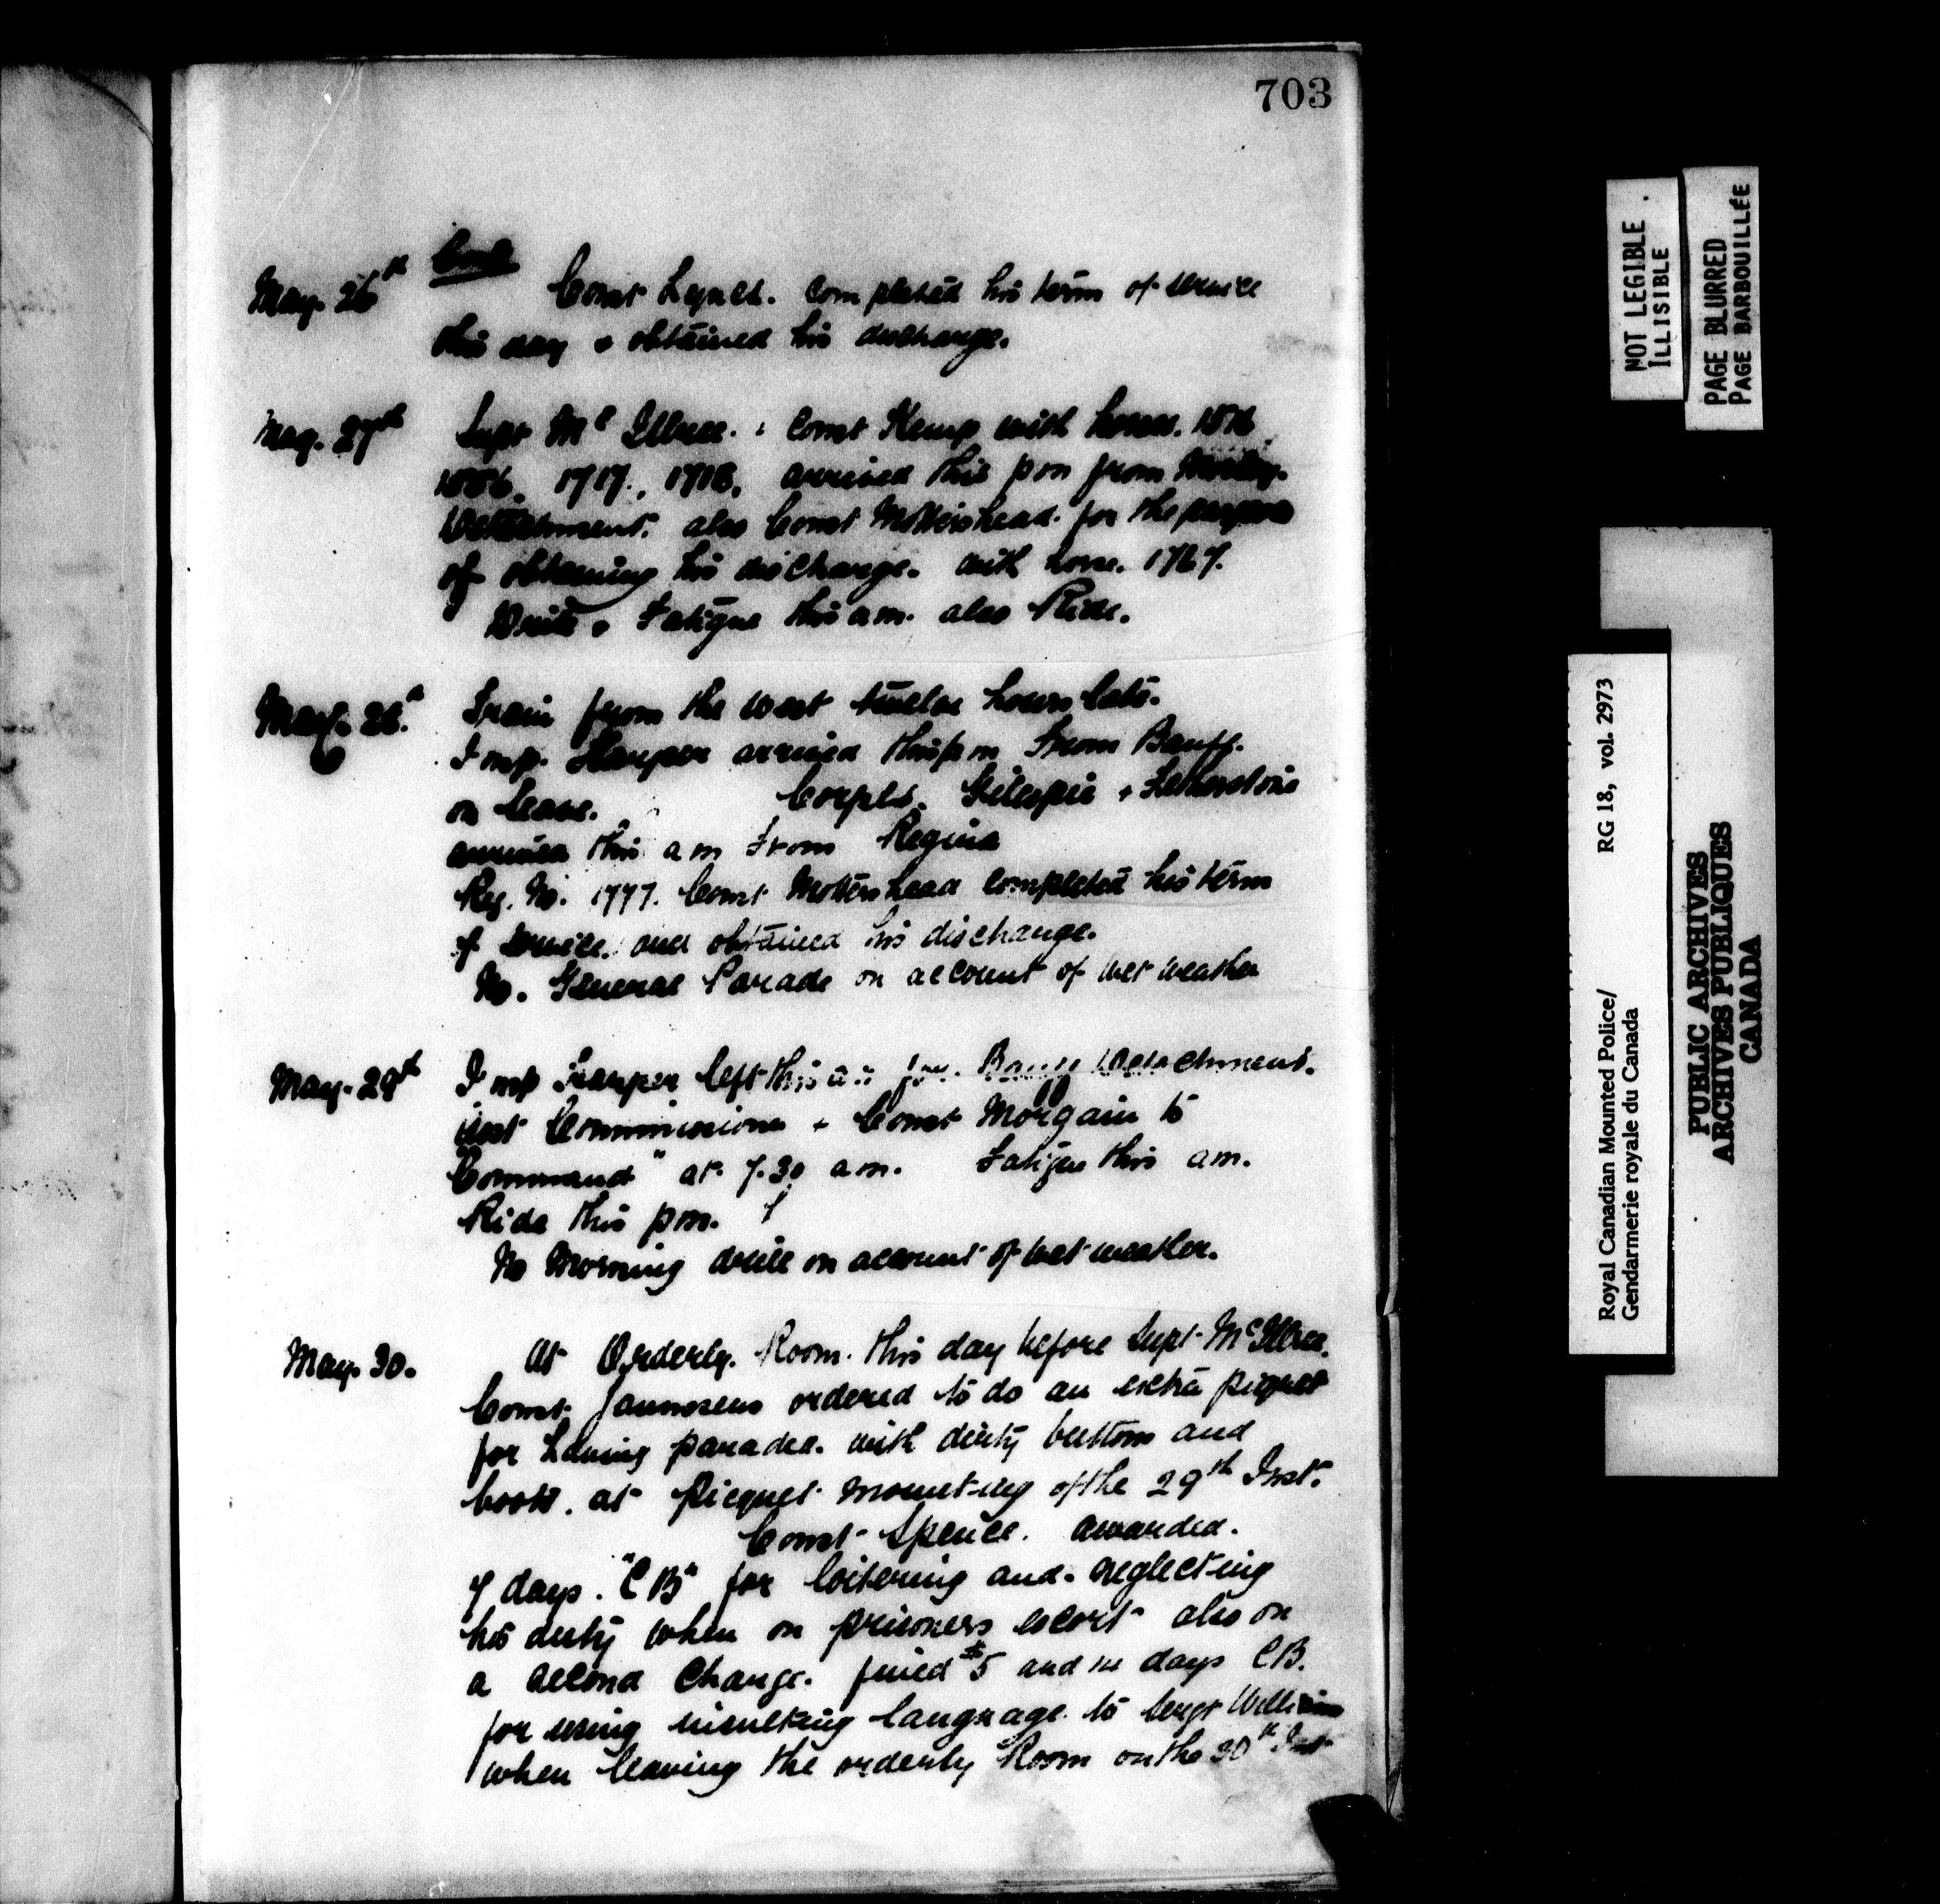 703
May. 26th Cont
Const Lynch. completed his term of service
this day & obtained his discharge.
May. 27th Supt McIllree. & Const Kemp with horses.
1717., 1718, arrived this pm from
Detachment. also Const Mottershead. for the purpose
of obtaining his discharge. with horse. 1767.
Drill & Fatigue this am. also Ride.
May. 28. Train from the west twelve hours late.
Insp. Harper arrived this pm from Banff.
on leave. Corpls. Gilespie & Fetherstone
arrived this am from Regina
Reg. No. 1777. Const Mottershead completed his term
of service. and obtained his discharge.
No. General Parade on account of wet weather
May. 29th Insp Harper left this am for. Banff Detachment.
Commissioner & Const Morgain to
Command" at 7.30 am. Fatigue this am.
Ride this pm.
No Morning drill on account of wet weather.
May. 30. At Orderly. Room. this day before Supt McIllree.
Const. ordered to do an extra picquet
for having paraded. with dirty buttons and
boots. at Picquet mounting of the 29th Inst.
Const Spence. awarded.
7 days. "CB" for loitering and neglecting
his duty when on prisoners escort also on
a second Charge. fined $5 and 14 days CB.
for using insulting language to Sergt
when leaving the orderly Room on the 30th Inst
NOT LEGIBLE
ILLISIBLE
PAGE BLURRED
PAGE BARBOUILLÉE
Royal Canadian Mounted Police/ RG 18, vol. 2973
Gendarmerie royale du Canada
PUBLIC ARCHIVES
ARCHIVES PUBLIQUES
CANADA